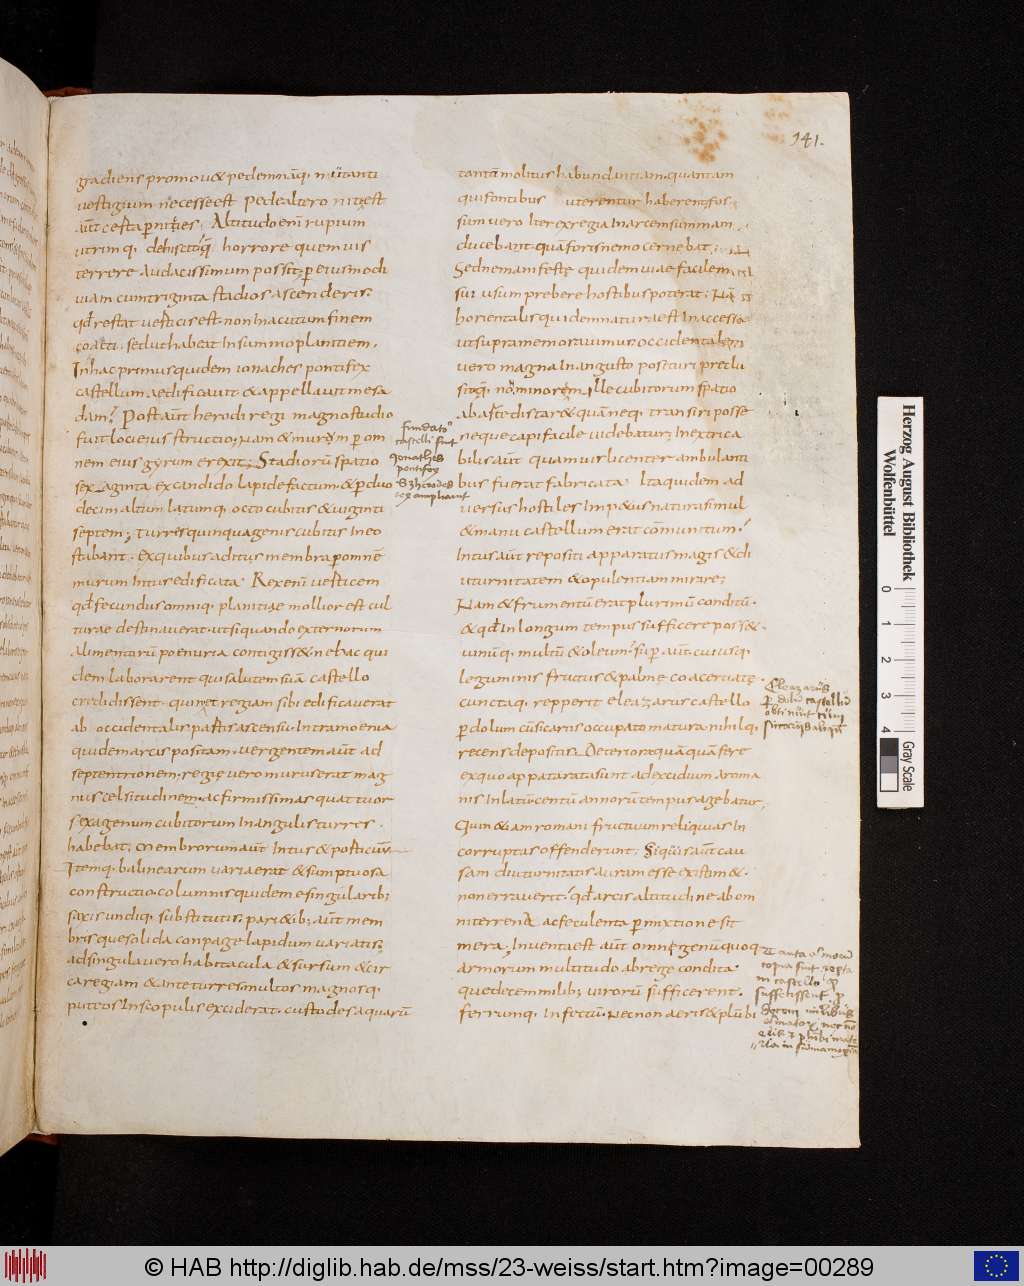 141.
gradiens promouet pedem. namq; nutanti
uestigium necesse est. Pede altero nti. Est
aut certa pernities. Altitudo enim rupium
utrimq; dehiscitq; horrore quemuis
terrere audacissimum possit; per eiusmodi
uiam cum triginta stadios ascenderis.
qd restat uesticis est. non in acutum finem
coacti. sed ut habeat in summo planitiem.
In hac primus quidem ionaches pontifex
castellum aedificauit & appellauit mesa
dam; Post aut herodi regi magno studio
fuit loci eius structio; Nam & murum per om
nem eius gyrum erexit; Stadiorū spatio
sex. aginta ex candido lapide factum. & per duo
decim altum latumq; octo cubitis & uiginti
septem; Turres quinquagenis cubitis in eo
stabant. ex quibus aditus membra per omnē
murum intus edificata. Rex enī uesticem
qd fecundus omniq; planitiae mollior est cul
turae destinauerat. ut si quando externorum
alimentorū poenuria contigisset ne hac qui
dem laborarent qui salutem suā castello
credidissent. quin et regiam sibi edificauerat
ab occidentalis partis ascensu. Intra moenia
quidem arcis positam. uergentem aūt ad
septentrionem. regię uero murus erat mag
nus celsitudinem. ac firmissimas quattuor
sexagenum cubitorum in angulis turres.
habebat; membrorum aūt intus & porticuum
itemq; balinearum uaria erat & sumptuosa
constructio. columnis quidem e singularib;
saxis undiq; substitutis; parietib; aūt mem
bris que solida conpage lapidum uariatis;
ad singula uero habitacula & sursum & cir
ca regiam & ante turres multos magnosq;
puteos in scopulis exciderat. custodes aquarū
tantū molitus habundantiam. quantam
qui fontibus uterentur haberent fos;
sum uero iter ex regia in arcem summam.
ducebant. quā foris nemo cernebat;
Sed ne manifestę quidem uiae facilem
sui usum prebere hostibus poterat; Nā
horientalis quidem natura est inaccessa
ut supra memorauimus. occidentalem
uero magna in angusto posituri preclu
sitq; non minorem mille cubitorum spatio
ab arce distaret. quā neq; transiri posse
neque capi facile uidebatur; Inextrica
bilis aūt quamuis licenter ambulanti
bus fuerat fabricata. Ita quidem ad
uersus hostiles impetus natura simul
& manu castellum erat cōmunitum;
Intus aūt repositi apparatus magis & di
uturnitatem & opulentiam mirare;
Nam & frumentū erat plurimū conditū.
& qd in longum tempus sufficere posset.
uinūq; multū & oleum. super aūt cuiusq;
leguminis fructus & palmę coaceruatę.
cunctaq; repperit eleazarus castello
per dolum cū sicariis occupato matura nihilq;
recens depositis. Deteriora quā quā fere
ex quo appatarata sunt ad excidium a roma
nis in latū. centū annorū tempus agebatur;
Quin etiam romani fructuum reliquias in
corruptas offenderunt; Si quis aūt cau
sam diuturnitatis auram esse existimet.
non errauerit. qd arcis altitudine ab om
ni terrena ac feculenta permixtione sit
mera; Inuenta est aūt omnigenū quoq;
armorum multitudo a rege condita
que decem milib; uirorū sufficerent.
ferrumq; infectū. Necnon aeris & plūbi
fundator
castelli fuit
Jonathes
pontifex
& herodes
rex ampliauit
Eleazarus
per dolū castellū
obtinuit cum
sicariis
Tanta armorū
copia fuit repta
in castello qd
suffecissent
decem milibus
© HAB http://diglib.hab.de/mss/23-weiss/start.htm?image=00289
Herzog August Bibliothek
Wolfenbüttel
0 1 2 3 4
Gray Scale